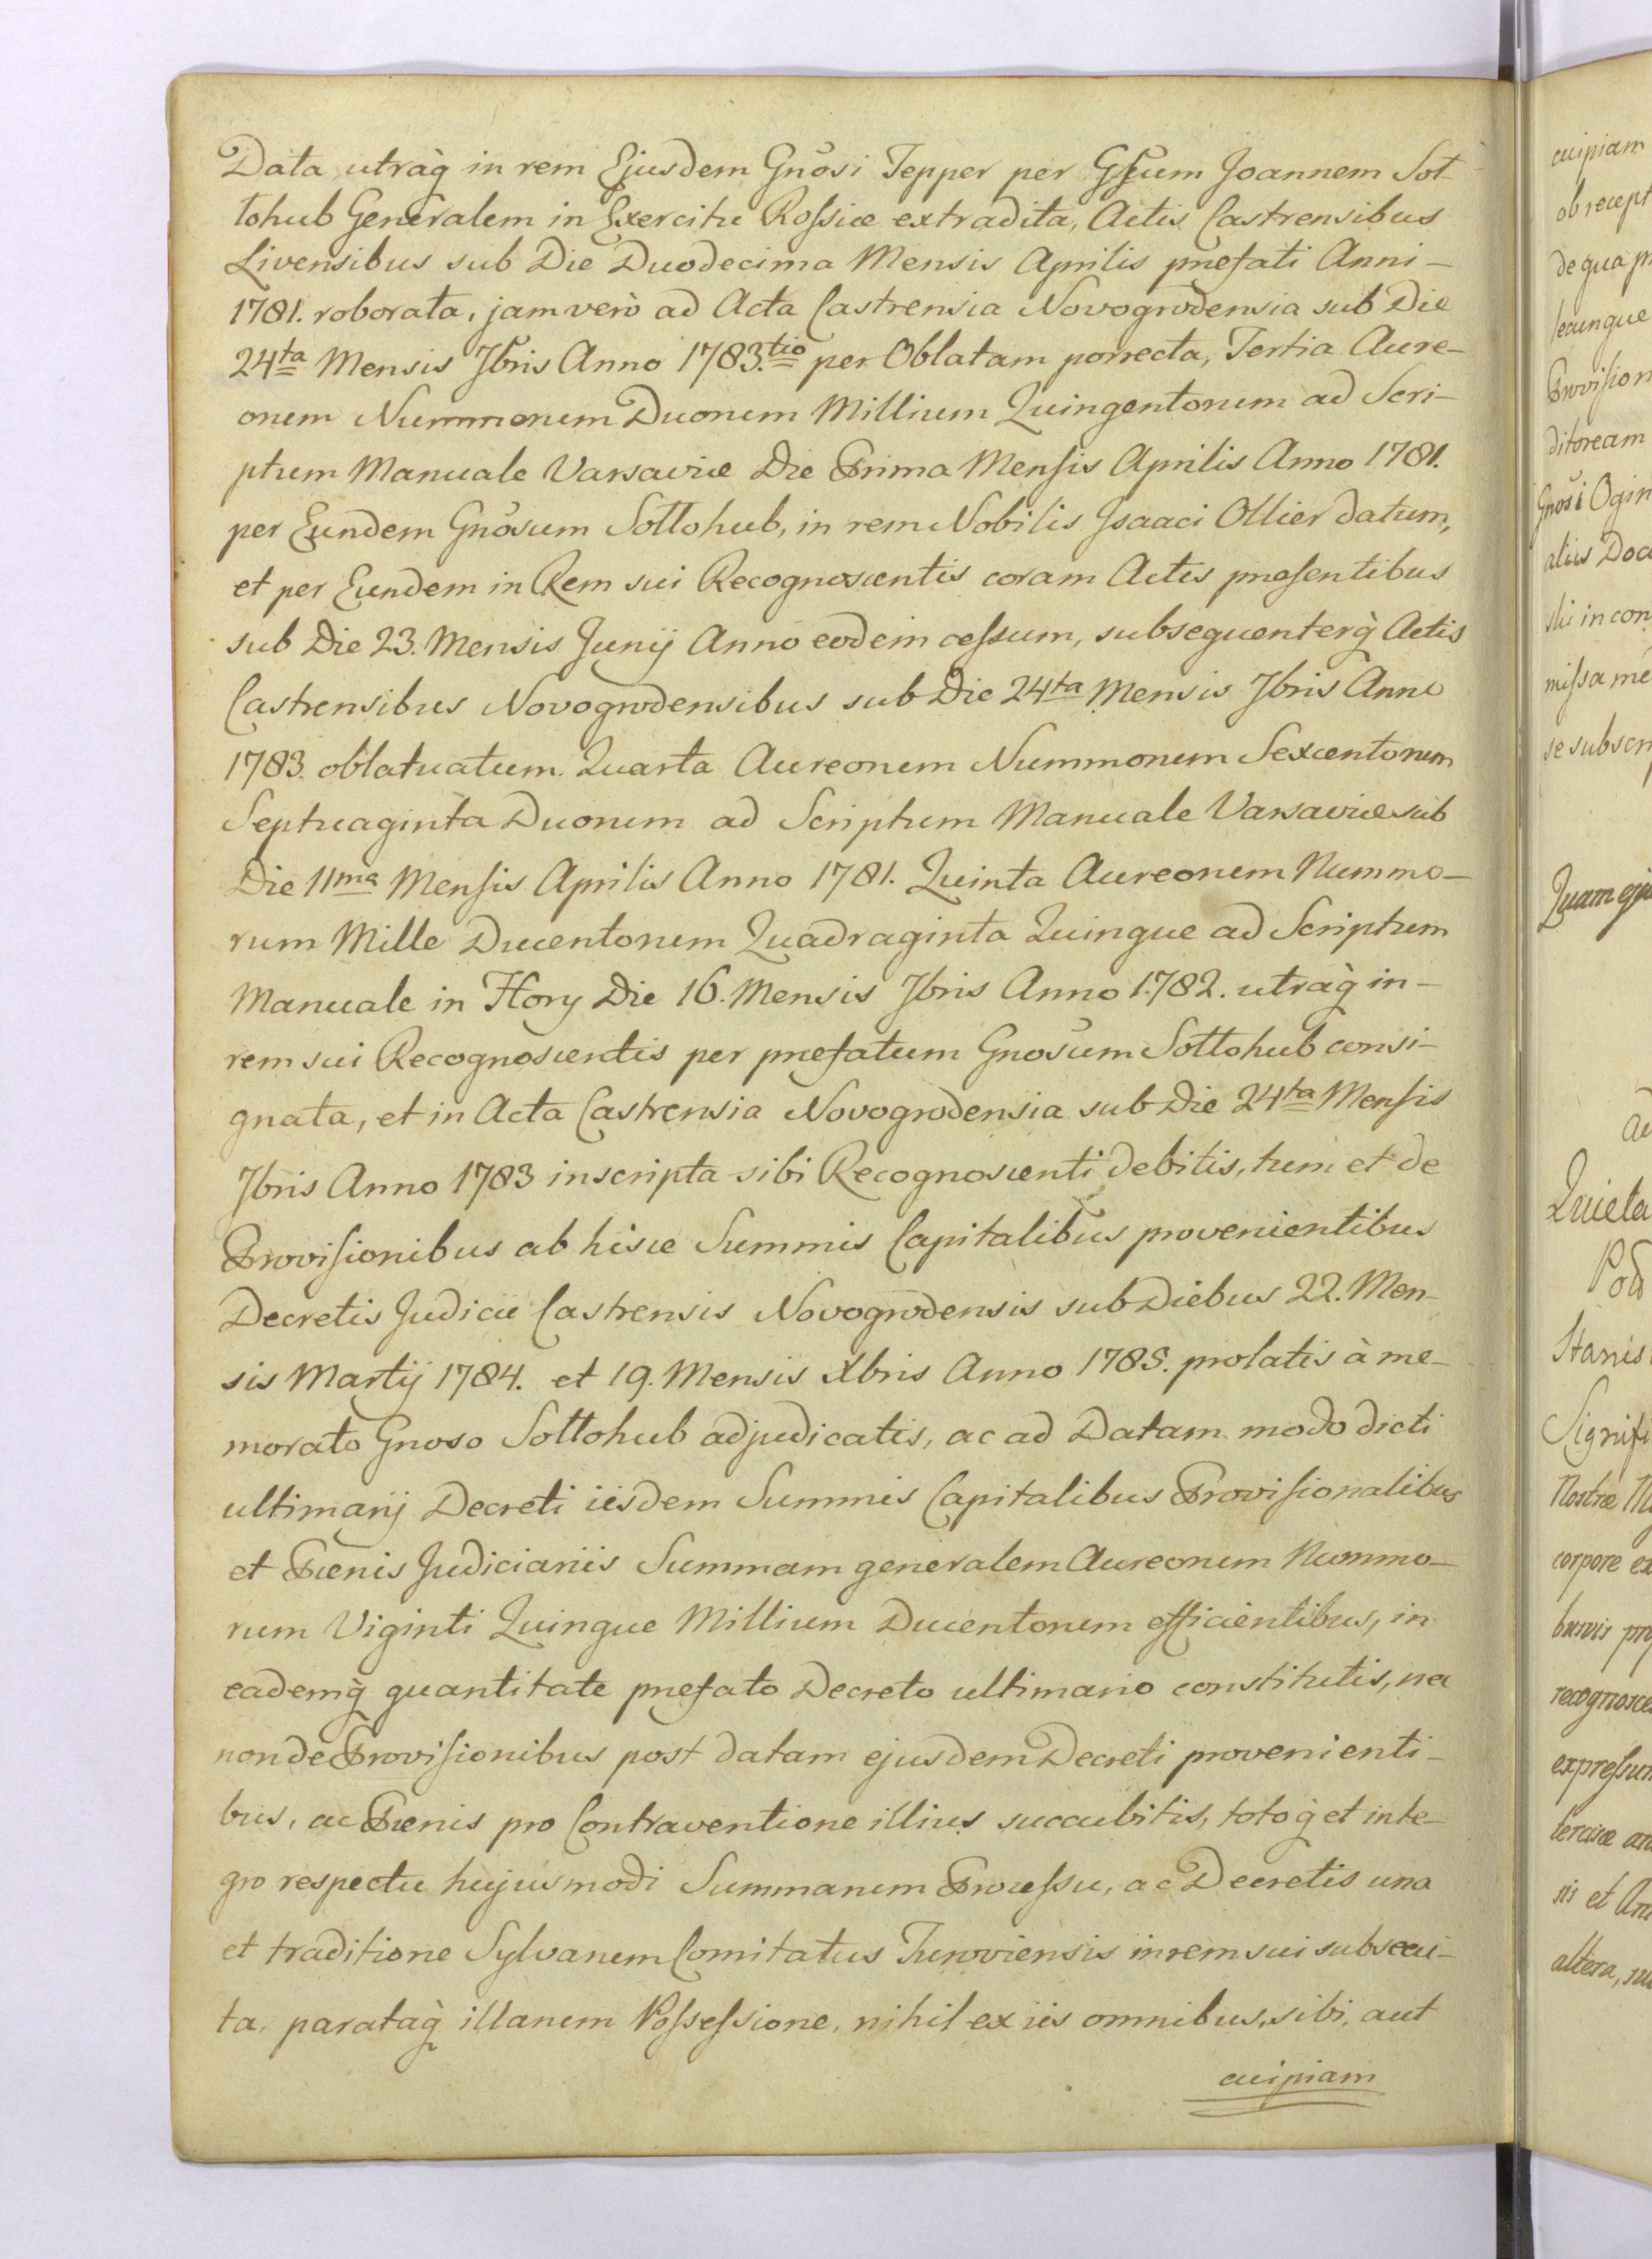 Data utraq̀ in rem Ejusdem Gnõsi Tepper per Gsum Joannem Sot-
tohub Generalem in Exercitu Rossiæ extradita, Actis Castrensibus
Livensibus sub Die Duodecima Mensis Aprilis præfati Anni -
1781. roborata, jam verò ad Acta Castrensia Novogrodensia sub Die
24ta Mensis 7bris Anno 1783.tio per Oblatam porrecta, Tertia Aure-
orum Nummorum Duorum Millium Quingentorum ad Scri-
ptum Manuale Varsaviæ Die Prima Mensis Aprilis Anno 1781.
per Eundem Gnõsum Sottohub, in rem Nobilis Isaaci Ollier datum,
et per Eundem in Rem sui Recognoscentis coram Actis præsentibus
sub Die 23. Mensis Junij Anno eodem cessum, subsequenterq̀ Actis
Castrensibus Novogrodensibus sub Die 24ta Mensis 7bris Anno
1783. oblatuatum. Quarta Aureorum Nummorum Sexcentorum
Septuaginta Duorum ad Scriptum Manuale Varsaviæ sub
Die 11ma Mensis Aprilis Anno 1781. Quinta Aureorum Nummo-
rum Mille Ducentorum Quadraginta Quinque ad Scriptum
Manuale in Hory Die 16. Mensis 7bris Anno 1782. utraq̀ in -
rem sui Recognoscentis per præfatum Gnosum Sottohub consi-
gnata, et in Acta Castrensia Novogrodensia sub Die 24ta Mensis
7bris Anno 1783 inscripta sibi Recognoscenti debitis, tum et de
Provisionibus ab hisce Summis Capitalibus provenientibus
Decretis Judicii Castrensis Novogrodensis sub Diebus 22. Men-
sis Martij 1784. et 19. Mensis Xbris Anno 1785. prolatis à me-
morato Gnoso Sottohub adjudicatis, ac ad Datam modo dicti
ultimarij Decreti iisdem Summis Capitalibus Provisionalibus
et Pœnis Judiciariis Summam generalem Aureorum Nummo-
rum Viginti Quinque Millium Ducentorum efficientibus, in
eademq̀ quantitate præfato Decreto ultimario constitutis, nec
non de Provisionibus post datam ejusdem Decreti provenienti-
bus, ac Pœnis pro Contraventione illius succubitis, totoq̀ et inte-
gro respectu hujusmodi Summarum Processu, ac Decretis una
et traditione Sylvarum Comitatus Turoviensis in rem sui subsecu-
ta, parataq̀ illarum Possessione, nihil ex iis omnibus, sibi, aut
cuipiam
cuipiam
ob recept
de qua
Provision
ditoream
Gnosi Ogin
aliis Docu
in con
missa me
se subscri
Quam eju
Ad
Quieta
Pod
Stanis
Signifi
Nostræ
corpore ex
recognosce
expressum
sis et
altera,